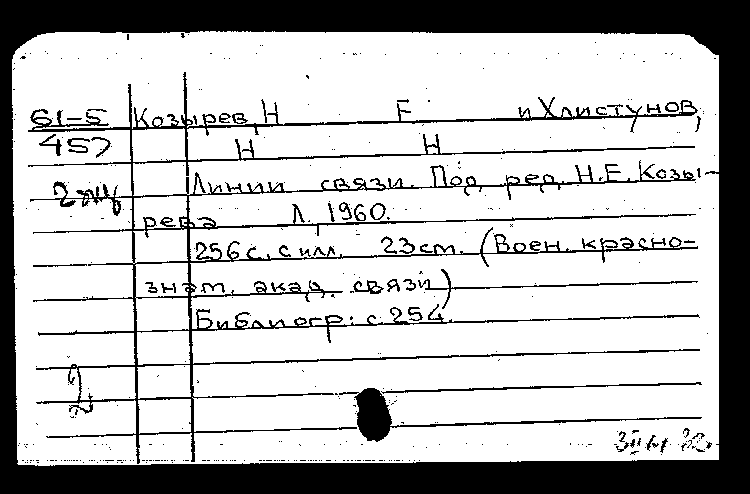 61-5 Козырев, Н Е и Хлистунов,
457 Н Н
Линии связи. Под ред. Н.Е. Козы-
рева Л., 1960.
256 с. с илл. 23 см. (Воен. красно-
знам. акад. связи)
Библиогр: с. 254.
2